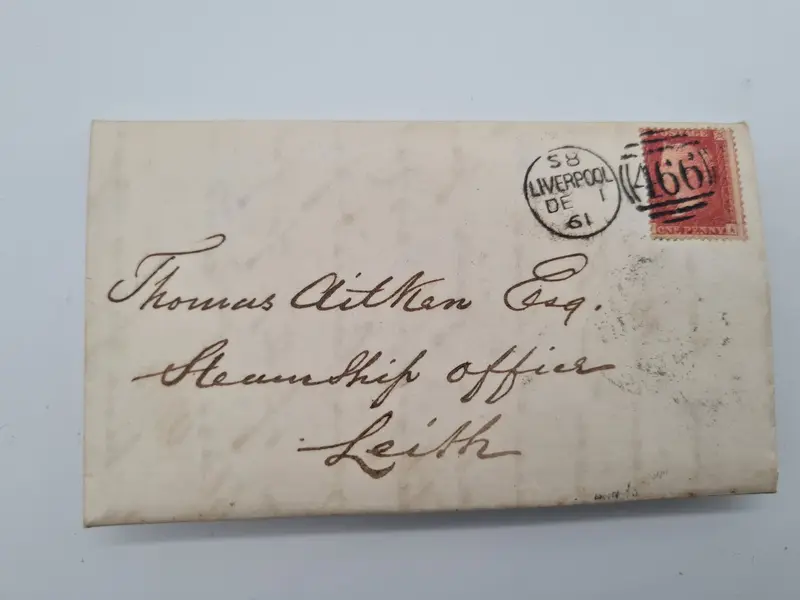 S8
LIVERPOOL
DE 1
61
466
ONE PENNY
Thomas Aitken Esq.
Steam Ship Office
Leith